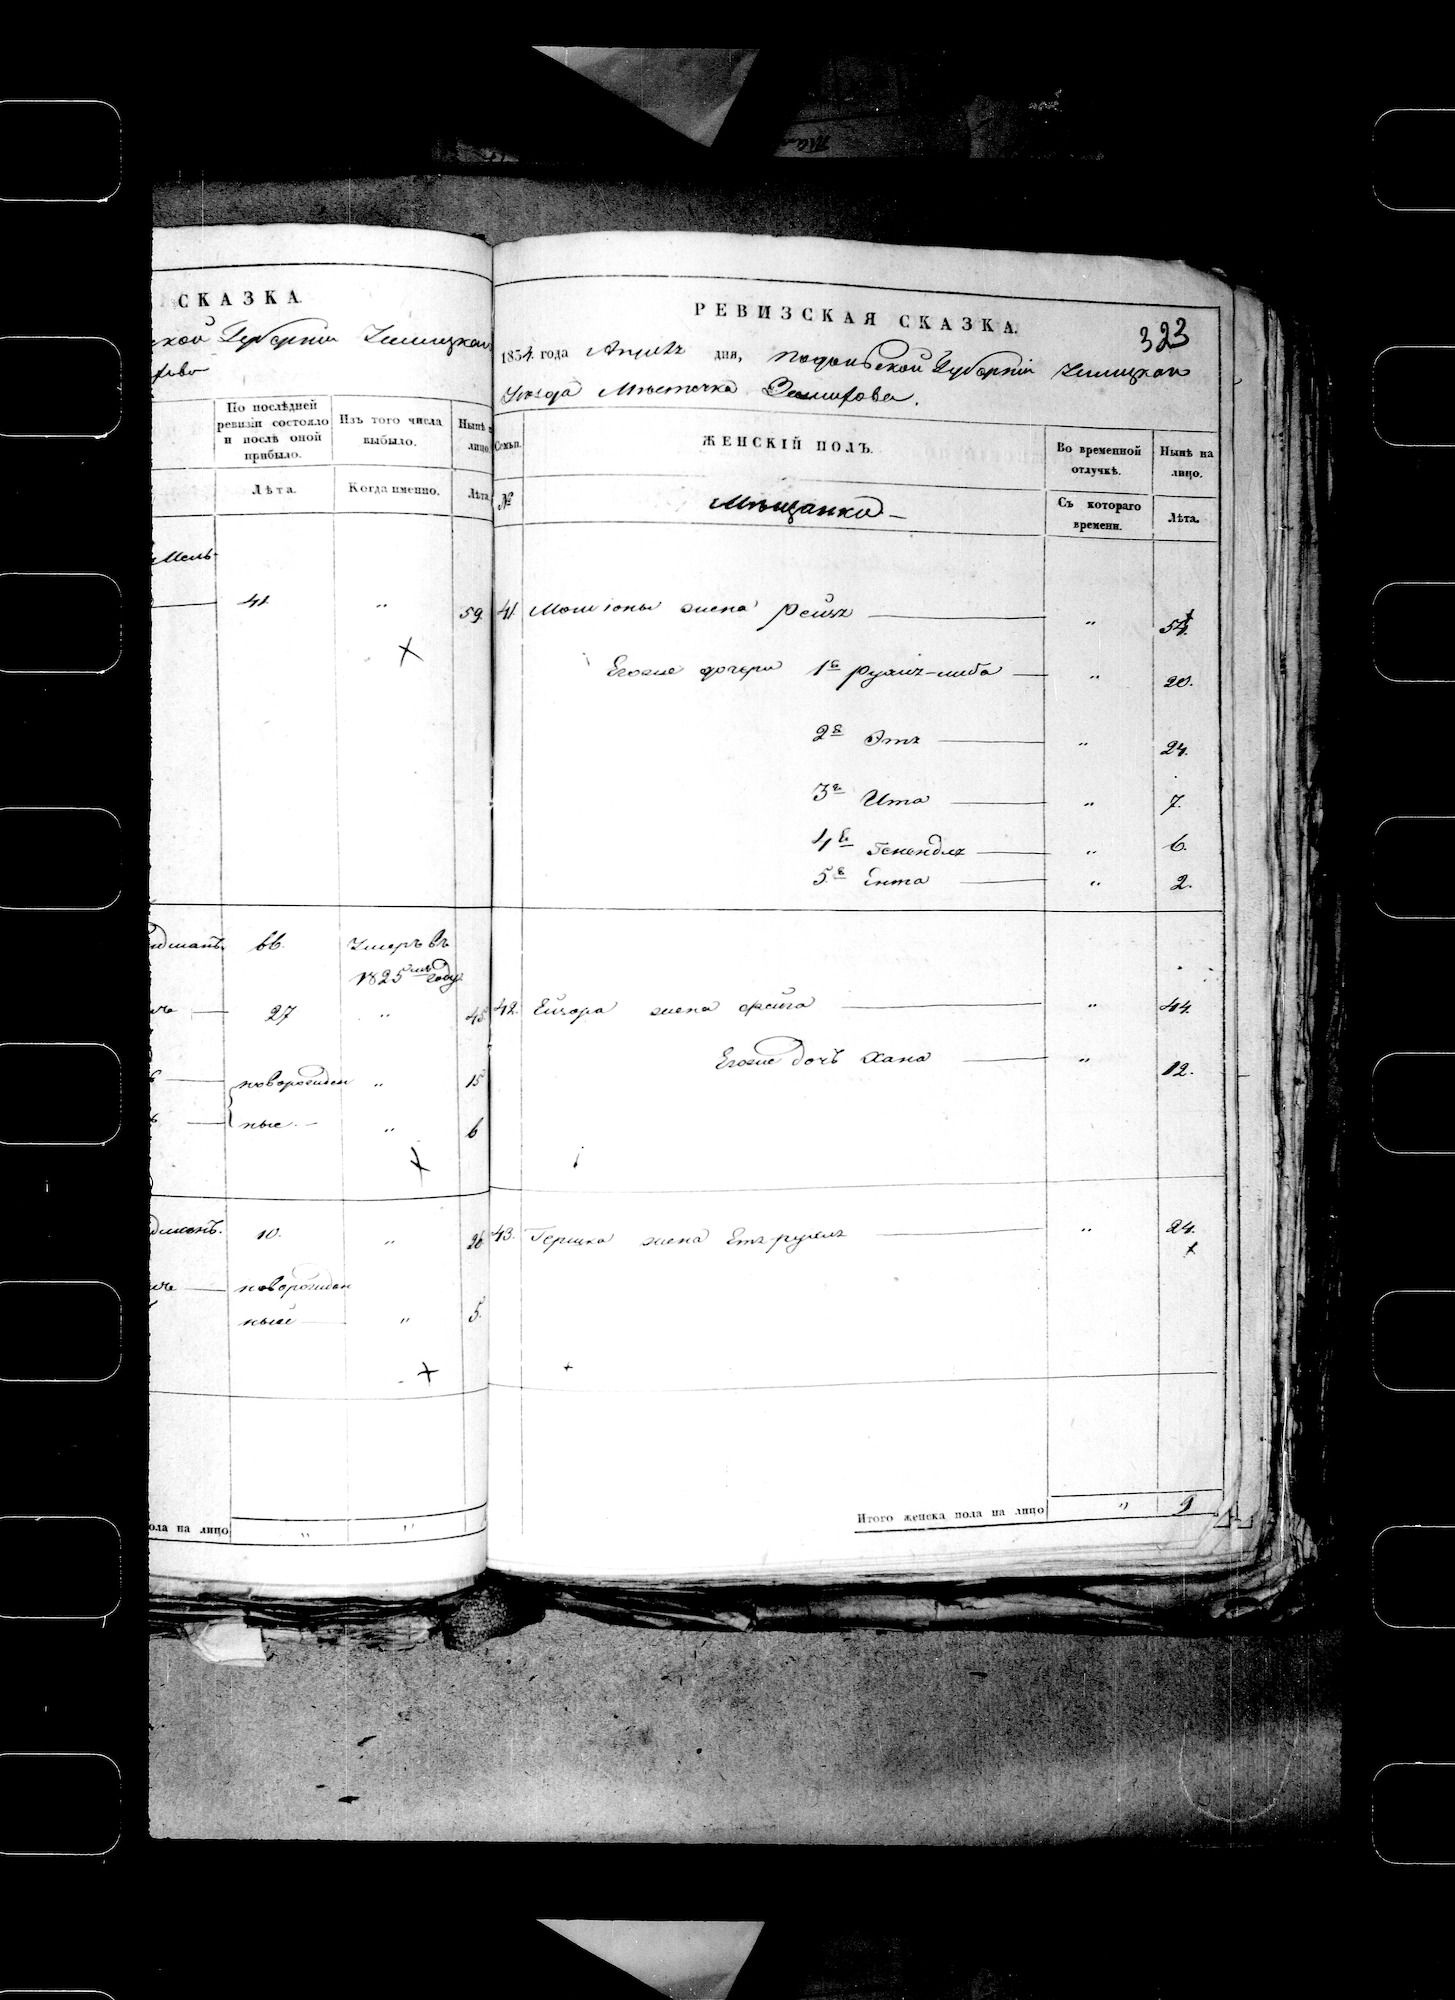 СКАЗКА.
ской Губерніи Ушицкаго
По послѣдней ревизіи состояло и послѣ оной прибыло.
Изъ того числа выбыло.
Нынѣ на лицо.
Лѣта.
Когда именно.
Лѣта.
41.
"
59.
66.
Умеръ въ
1825мъ году
27
"
45
новорожден
"
15
ные.
"
6
10.
"
26
новорожден
ный
"
5.
ола на лицо
"
"
РЕВИЗСКАЯ СКАЗКА.
323
1834. года Апрѣля дня, Подольской Губерніи Ушицкаго
Уѣзда Мѣстечка
Семьи.
ЖЕНСКІЙ ПОЛЪ.
Во временной отлучкѣ.
Нынѣ на лицо.
№
Мѣщанки
Съ котораго времени.
Лѣта.
41 жена Рейзя " 54.
Егоже дочери 1я Рухля-либа " 20.
2я Этя " 24.
3я Ита " 7.
4я Генендля " 6.
5я Ента " 2.
42. жена Фейга " 44.
Егоже дочь Хана " 12.
43. Гершка жена Етя-рухля " 24.
Итого женска пола на лицо " 9